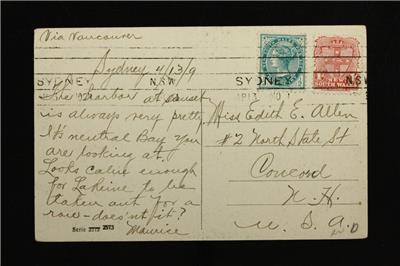 Via Vancouver
Sydney 4/13/9
The harbor at sunset
is always very pretty.
It's neutral Bay you
are looking at.
Looks calm enough
for to be
taken out for a
row - doesn't it?
Maurice
Serie 2573
SYDNEY N.S.W.
SYDNEY N.S.W.
SOUTH WALES
Miss Edith E. Allen
#2 North State St
Concord
N. H.
U. S. A.